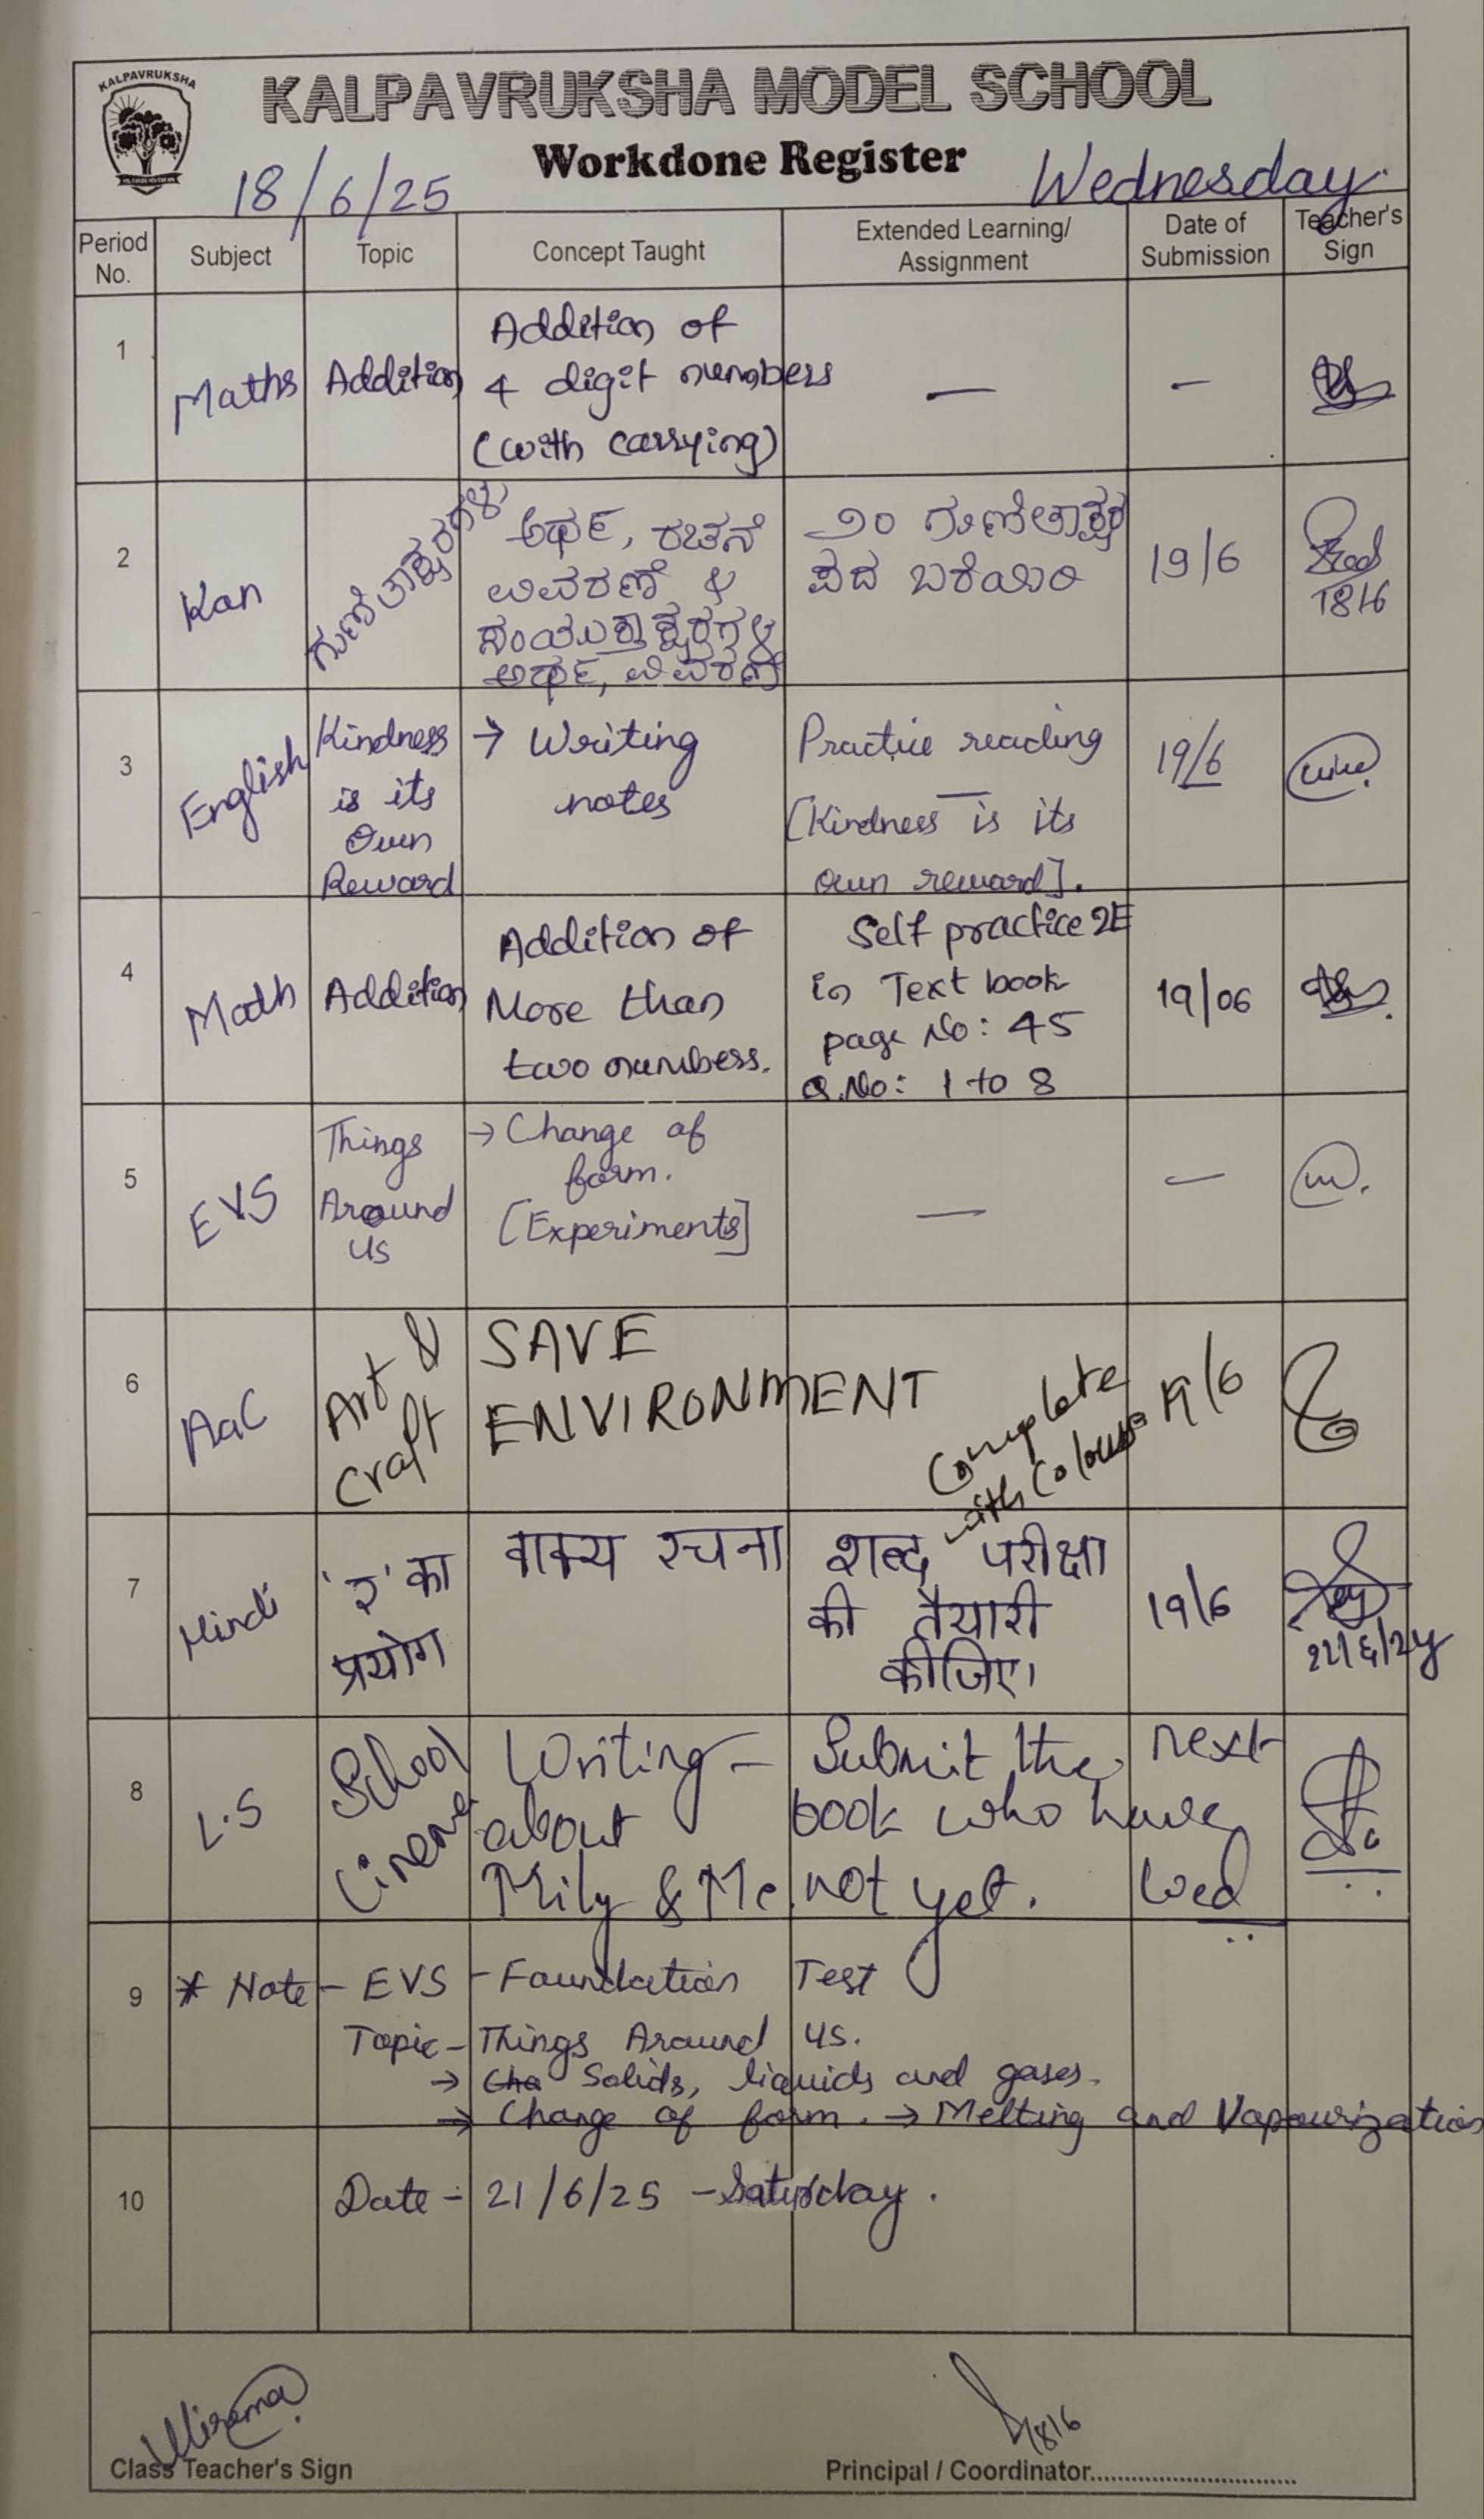 KALPAVRUKSHA
KALPAVRUKSHA MODEL SCHOOL
Workdone Register
18/6/25
Wednesday
Period No.
Subject
Topic
Concept Taught
Extended Learning/ Assignment
Date of Submission
Teacher's Sign
1
Maths
Addition
Addition of
4 digit numbers
(with carrying)
—
–
2
Kan
ಗುಣಿತಾಕ್ಷರಗಳು
ಅರ್ಥ, ರಚನೆ
ವಿವರಣೆ &
ಸಂಯುಕ್ತಾಕ್ಷರಗಳ
ಅರ್ಥ, ವಿವರಣೆ
೨೦ ಗುಣಿತಾಕ್ಷರ
ಪದ ಬರೆಯಿರಿ
19/6
18/6
3
English
Kindness
is its
Own
Reward
→ Writing
notes
Practice reading
[Kindness is its
own reward].
19/6
4
Math
Addition
Addition of
More than
two numbers.
Self practice 2E
in Text book
page No: 45
Q.No: 1 to 8
19/06
5
EVS
Things
Around
us
→ Change of
form.
[Experiments]
—
—
6
AaC
Art &
Craft
SAVE
ENVIRONMENT
Complete
with Colours
19/6
7
Hindi
'र' का
प्रयोग
वाक्य रचना
शब्द परीक्षा
की तैयारी
कीजिए।
19/6
8
L.S
School
Cinema
Writing –
about
Mily & Me
Submit the
book who have
not yet.
next
Wed
9
* Note – EVS – Foundation Test
Topic – Things Around us.
→ Cha Solids, liquids and gases.
→ Change of form. → Melting and Vapourization
10
Date – 21/6/25 – Saturday.
18/6
Class Teacher's Sign
Principal / Coordinator..............................